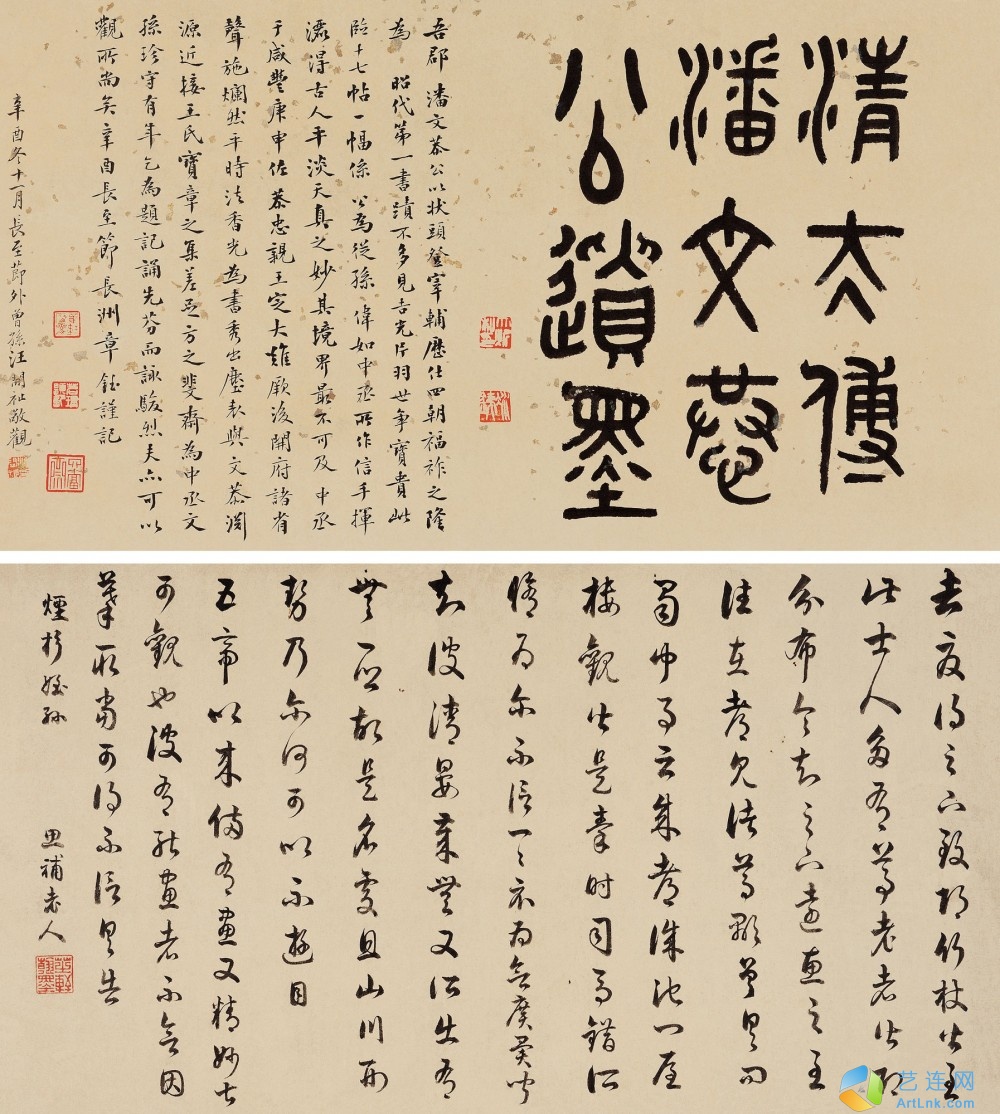 清太傅
潘文恭
公遺墨
吾郡 潘文恭公以狀頭登宰輔歷仕四朝福祚之隆
為 昭代第一書蹟不多見吉光片羽世爭寶貴此
臨十七帖一幅係 公為從孫偉如中丞所作信手揮
灑得古人平淡天真之妙其境界最不可及 中丞
于咸豐庚申佐恭忠親王定大難厥後開府諸省
聲施爛然平時法香光為書秀出塵表與文恭淵
源近接王氏寶章之集差足方之斐齋為中丞文
孫珍守有年乞為題記誦先芬而詠駿烈夫亦可以
觀所尚矣辛酉長至節長洲章鈺謹記
辛酉冬十一月長至節外曾孫汪開祉敬觀
去夏得足下致邛竹杖皆至
此士人多有尊老者皆即
分布令知足下遠惠之至
往在都見諸葛顯曾具問
蜀中事云成都城池門屋
樓觀皆是秦時司馬錯所
脩為爾不信一一示為欲廣異聞
知彼清晏歲豐又所出有
無一鄉故是名處且山川形
勢乃爾何可以不遊目
五帝以來備有畫又精妙甚
可觀也彼有能畫者不欲因
摹取當可得不信具告
煙杉姪孫
思補老人
艺连网
ArtLnk.com